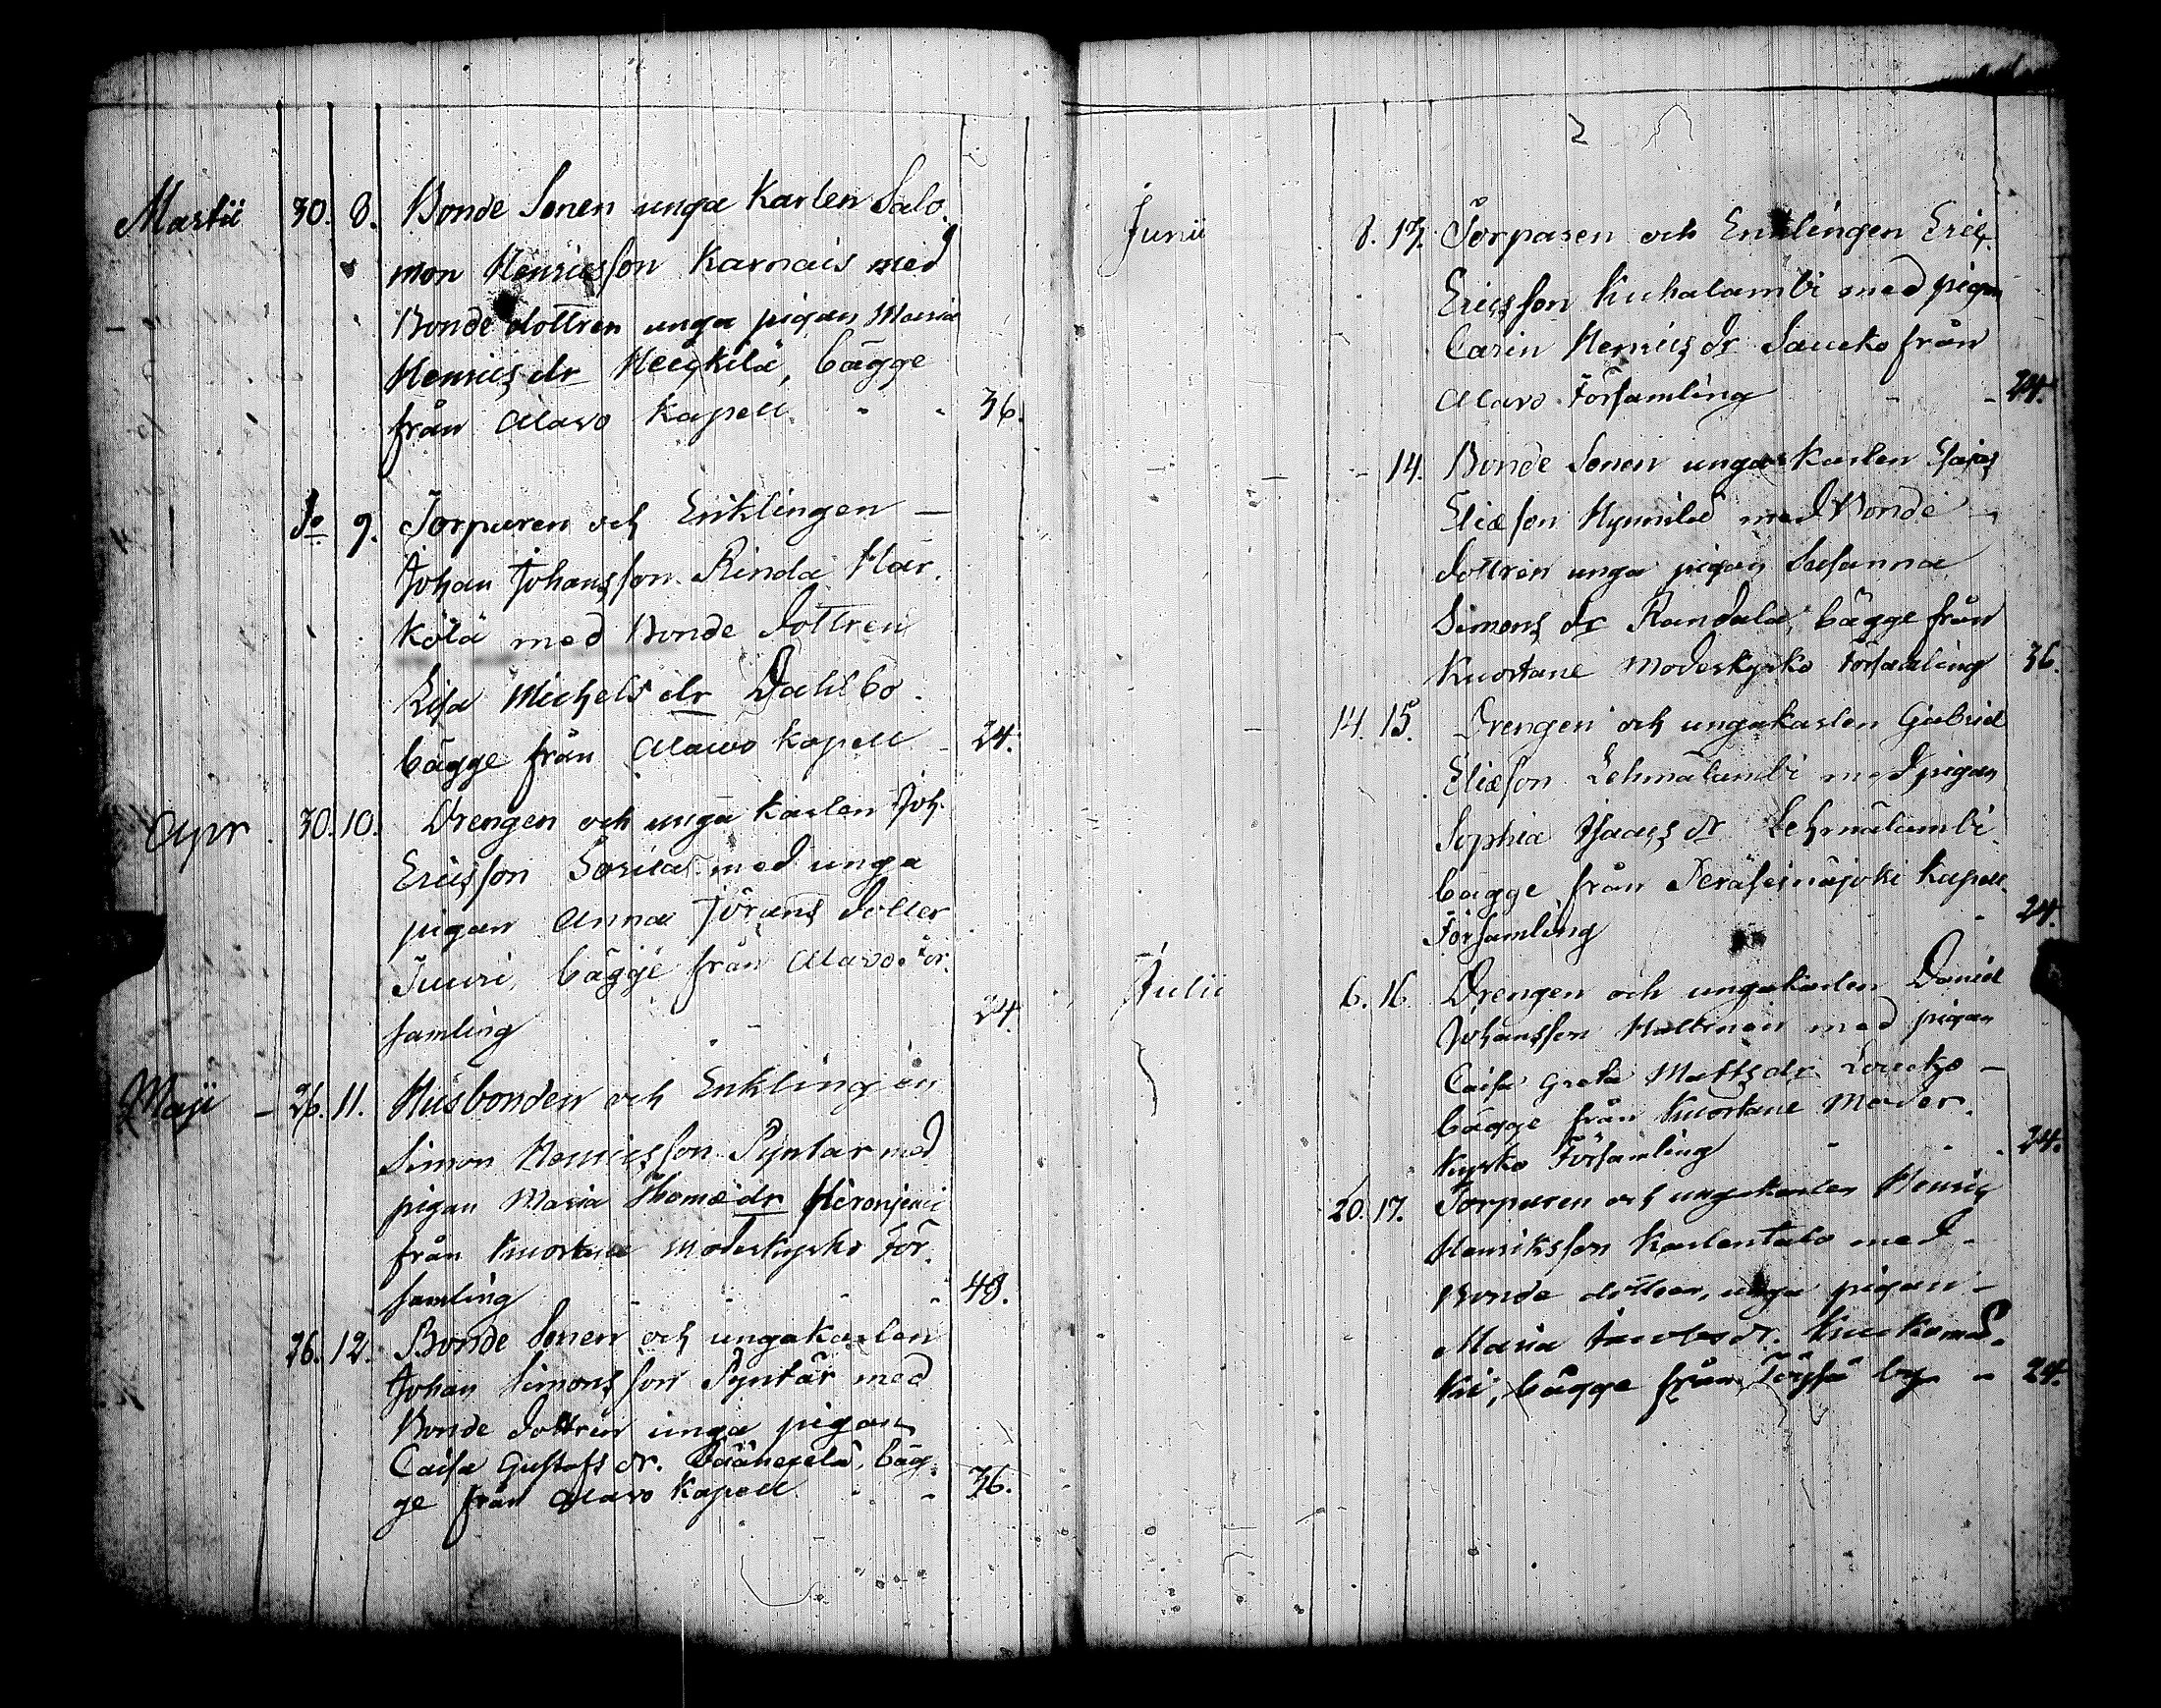 Martii 30. 8. Bonde Sonen unga Karlen Salo
mon Henricsson Karnais med
Bonde dottren unga pigan Maria
Henrics dr Heickilä, bägge
från Alavo Kapell. - - 36.
do 9. Torparen och Enklingen -
Johan Johansson Rinda Här
kölä med Bonde Dottren
Lisa Michels dr Dahlbo
bägge från Alawo Kapell - 24.
Apr. 30. 10. Drengen och unga karlen Joh.
Ericsson Sorila med unga
pigan Anna Jörans Dotter
Juuri, bägge från Alavo För
samling - - 24
Maji - 26. 11. Husbonden och Enklingen
Simon Henricsson Pyntar med
pigan Maria Thomæ dr
från Kuortane Moderkyrko För
samling - - - - 48.
26. 12. Bonde Sonen och ungakarlen
Johan Simonsson Pyntär med
Bonde Dottren unga pigan
Caisa Gustafs dr. bäg
ge från Alavo Kapell - - 36.
2
Junii 8. 13. Torparen och Enklingen Eric
Ericsson Kuhalambi med pigan
Carin Henrics dr Saucko från
Alavo Församling - - 24.
- 14. Bonde Sonen unga Karlen Esaias
Eliæson med Bonde
dottren unga pigan Susanna
Simons dr Randala, bägge från
Kuortane Moderkyrko Församling 36.
14. 15. Drengen och ungakarlen Gabriel
Eliæson Lehmälambi med pigan
Sophia Isaacs dr Lehmälambi
bägge från Peräseinäjoki Kapell
Församling - 24.
Julii 6. 16 Drengen och ungakarlen Daniel
Johansson med pigan
Caisa Greta Matts dr. -
bägge från Kuortane Moder
kyrko Församling - - 24.
20. 17. Torparen och ungakarlen Henric
Henriksson med
Bonde dottren, unga pigan -
Maria Jacobs dr. Kuckomäc
ki, bägge från Töysä by - 24.